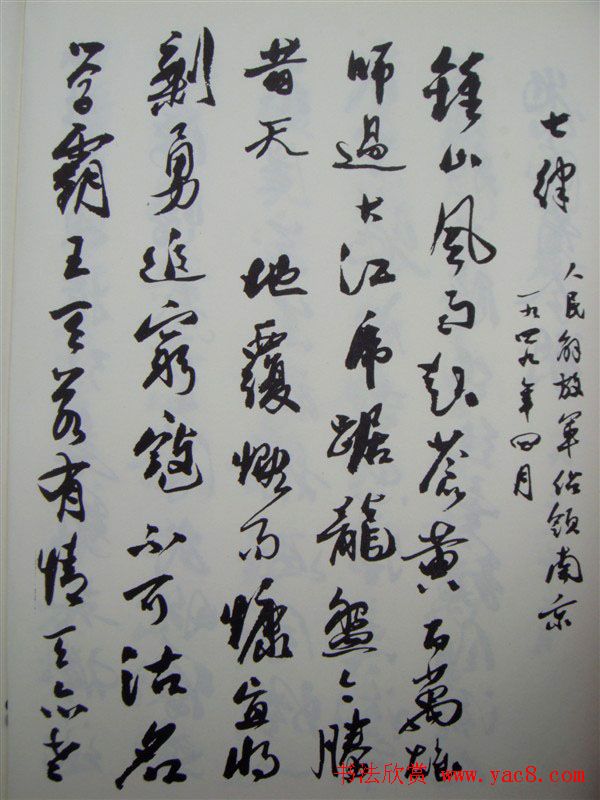 七律
人民解放軍佔領南京
一九四九年四月
鍾山風雨起蒼黄百萬雄
師過大江虎踞龍盤今勝
昔天 地覆慨而慷宜將
剩勇追窮寇不可沽名
学霸王天若有情天亦老
书法欣赏 www.yac8.com